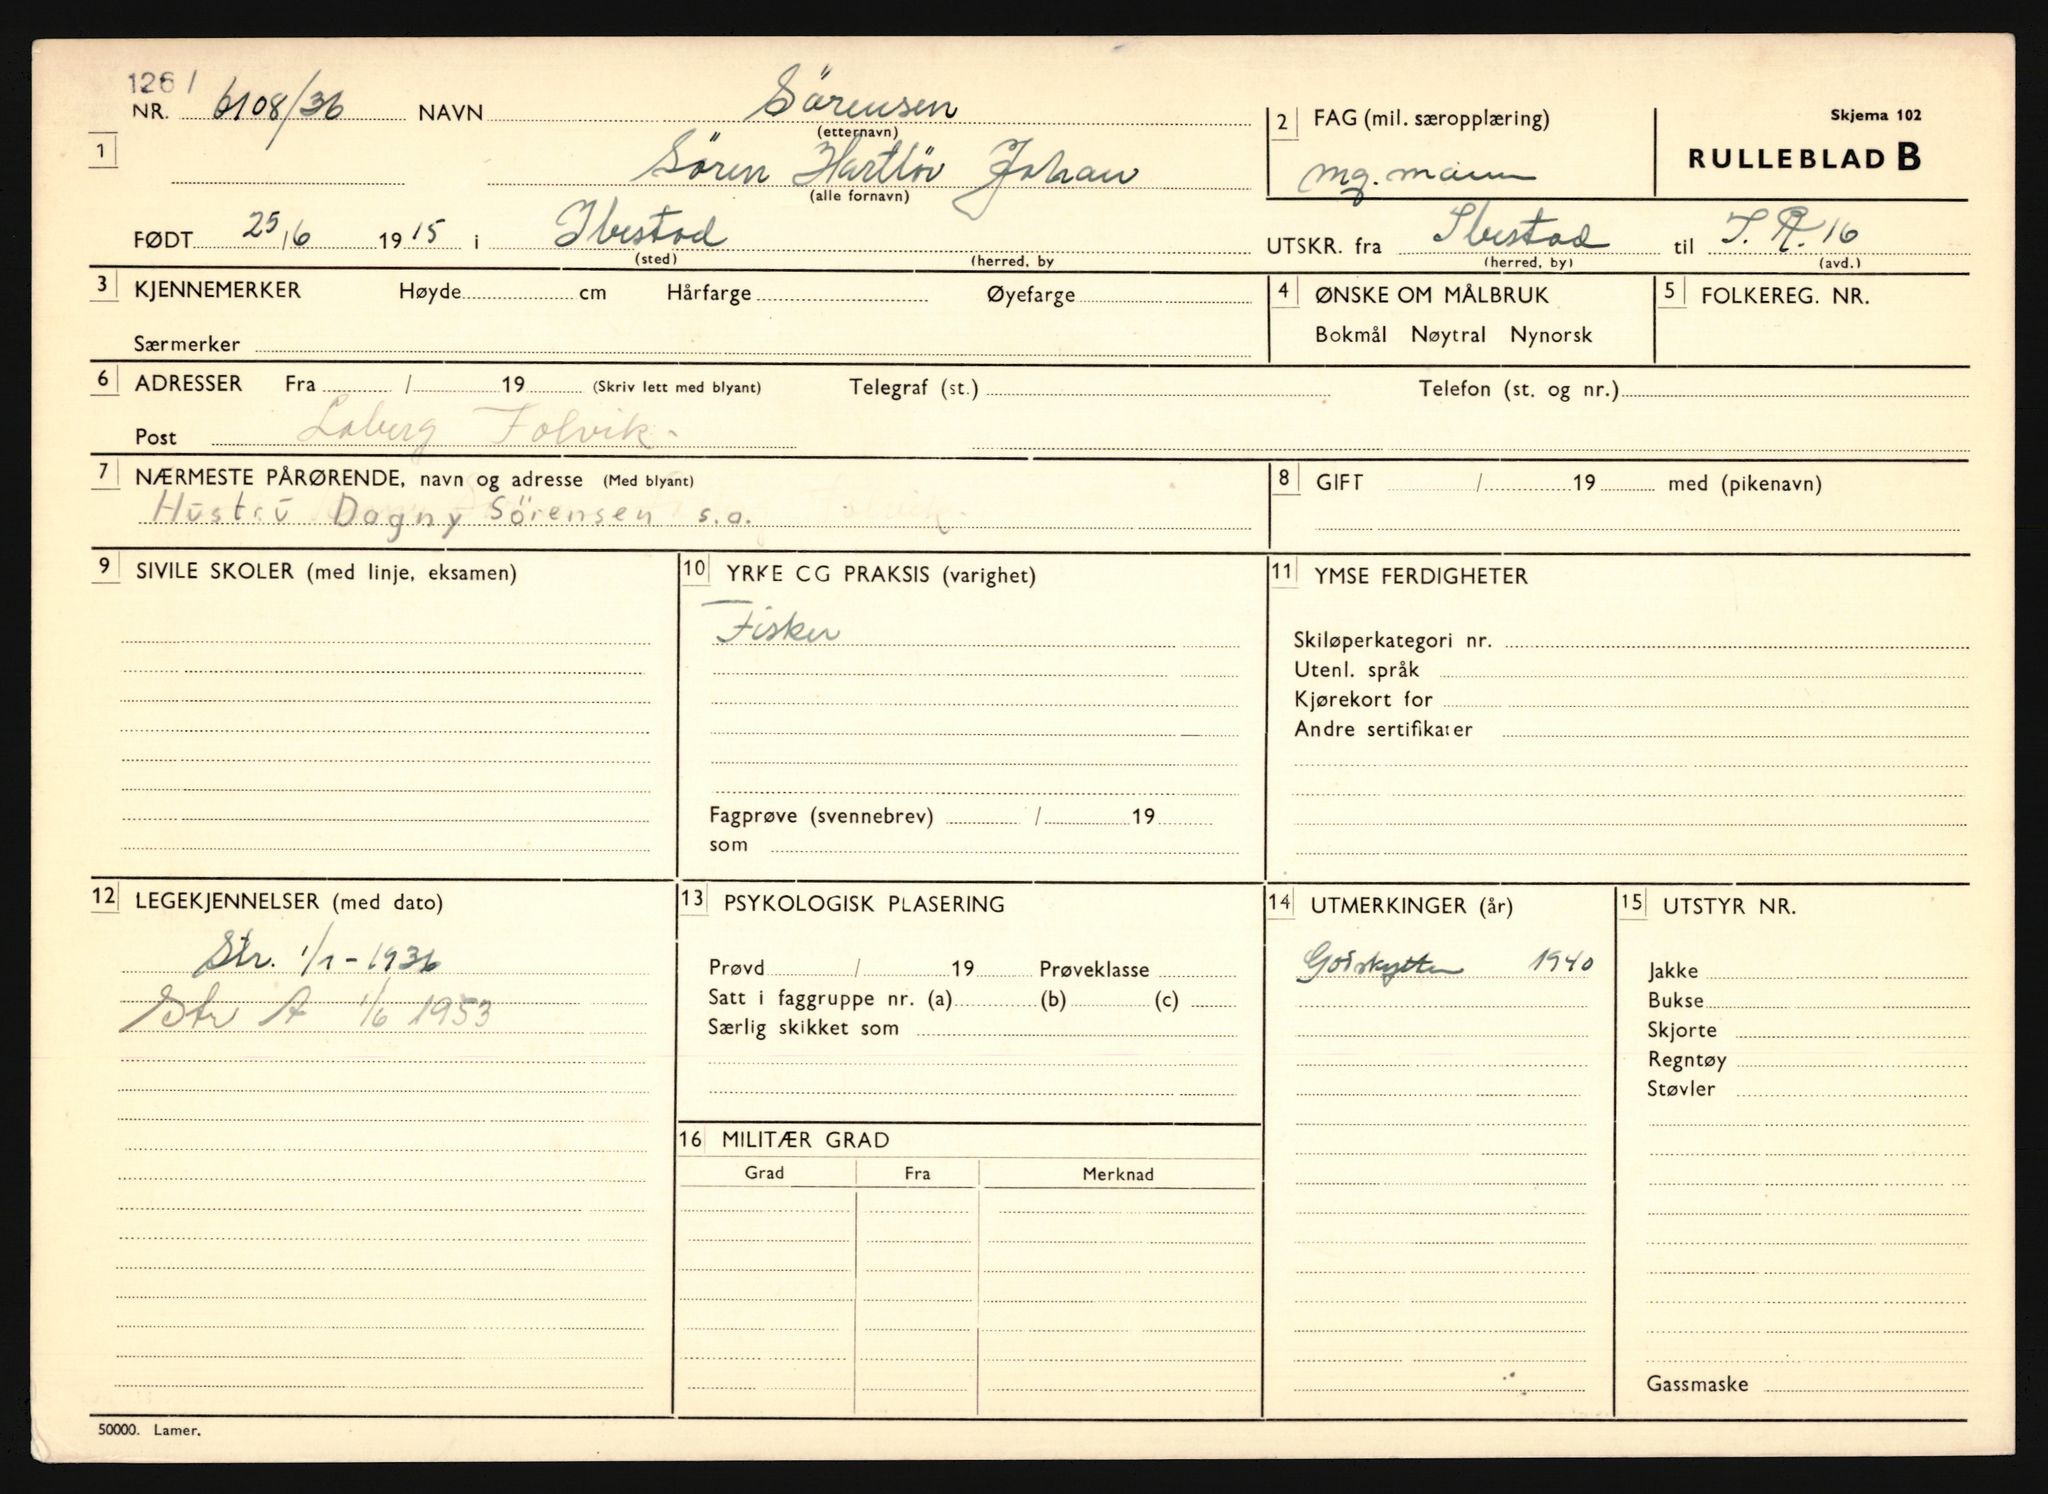 126 /
NR. 6108/36 NAVN Sörensen
(etternavn)
2 FAG (mil. særopplæring)
Skjema 102
RULLEBLAD B
1
Sören Hartlöv Johan
(alle fornavn)
mg. mann
FØDT 25/6 1915 i Ibestad
(sted) (herred, by
UTSKR. fra Ibestad til I.R. 16
(herred, by) (avd.)
3 KJENNEMERKER Høyde cm Hårfarge Øyefarge
Særmerker
4 ØNSKE OM MÅLBRUK
Bokmål Nøytral Nynorsk
5 FOLKEREG. NR.
6 ADRESSER Fra / 19 (Skriv lett med blyant) Telegraf (st.) Telefon (st. og nr.)
Post Laberg Folvik.
7 NÆRMESTE PÅRØRENDE, navn og adresse (Med blyant)
Hustru Dagny Sörensen s.a.
8 GIFT / 19 med (pikenavn)
9 SIVILE SKOLER (med linje, eksamen)
10 YRKE OG PRAKSIS (varighet)
Fisker
Fagprøve (svennebrev) / 19
som
11 YMSE FERDIGHETER
Skiløperkategori nr.
Utenl. språk
Kjørekort for
Andre sertifikater
12 LEGEKJENNELSER (med dato)
Str. 1/1 - 1936
Str A 1/6 1953
13 PSYKOLOGISK PLASERING
Prøvd / 19 Prøveklasse
Satt i faggruppe nr. (a) (b) (c)
Særlig skikket som
14 UTMERKINGER (år)
Godskytter 1940
15 UTSTYR NR.
Jakke
Bukse
Skjorte
Regntøy
Støvler
Gassmaske
16 MILITÆR GRAD
Grad Fra Merknad
50000. Lamer.